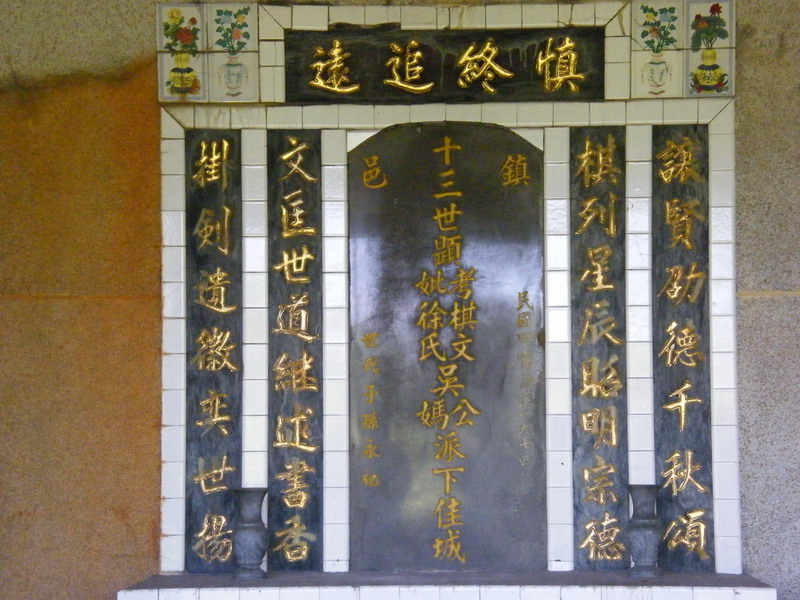 慎終追遠
讓賢劭德千秋頌
棋列星辰昭明宗德
鎮邑
民國四十
十三世顯考棋文吳公派下佳城
妣徐氏媽
世代子孫永祀
文匡世道繼述書香
掛剣遺徽奕世揚